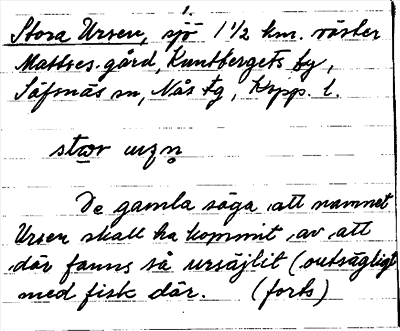 1.
Stora Ursen, sjö 1 1/2 km. väster
Mattses gård, Kuntbergets by,
Säfsnäs sn, Nås tg, Kpps. l.
De gamla säga att namnet
Ursen skall ha kommit av att
där fanns så ursäjlit (outsägligt
med fisk där. (forts)